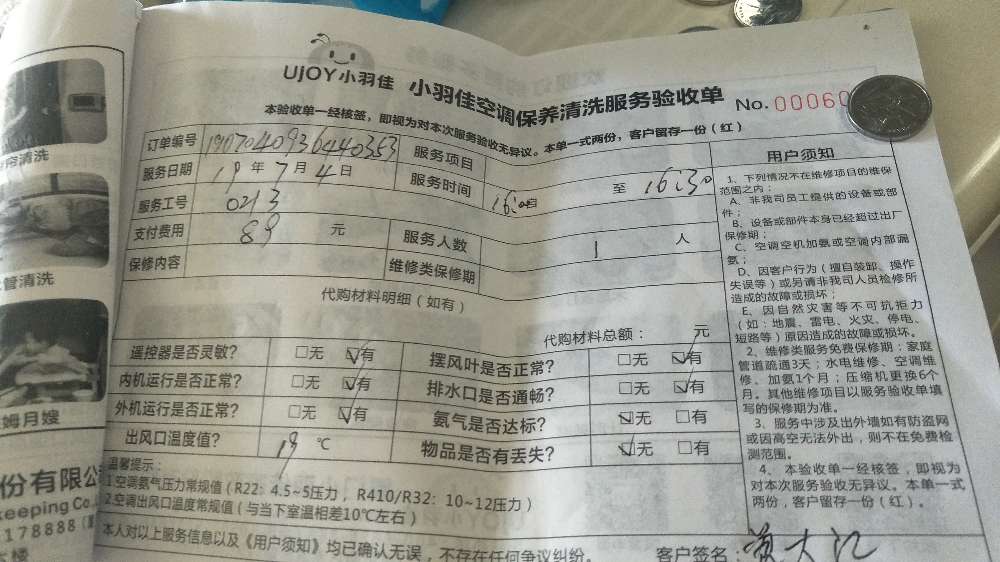 UJOY小羽佳 小羽佳空调保养清洗服务验收单 No. 00060
本验收单一经核签，即视为对本次服务验收无异议。本单一式两份，客户留存一份（红）
订单编号 服务项目
服务日期 19 年 7 月 4 日 服务时间 至 16:30
服务工号 0213
支付费用 89 元 服务人数 1 人
保修内容 维修类保修期
代购材料明细（如有）
代购材料总额： 元
遥控器是否灵敏？ □无 ☑有 摆风叶是否正常？ □无 ☑有
内机运行是否正常？ □无 ☑有 排水口是否通畅？ □无 ☑有
外机运行是否正常？ □无 ☑有 氨气是否达标？ ☑无 □有
出风口温度值？ 19 ℃ 物品是否有丢失？ ☑无 □有
温馨提示：
1.空调氨气压力常规值（R22：4.5~5压力，R410/R32：10~12压力）
2.空调出风口温度常规值（与当下室温相差10℃左右）
本人对以上服务信息以及《用户须知》均已确认无误，不存在任何争议纠纷。
客户签名：
用户须知
1、下列情况不在维修项目的维保
范围之内；
A、非我司员工提供的设备或部
件；
B、设备或部件本身已经超过出厂
保修期；
C、空调空机加氨或空调内部漏
氨；
D、因客户行为（擅自装卸、操作
失误等）或另请非我司人员检修所
造成的故障或损坏；
E、因自然灾害等不可抗拒力
（如：地震、雷电、火灾、停电、
短路等）原因造成的故障或损坏。
2、维修类服务免费保修期：家庭
管道疏通3天；水电维修、空调维
修、加氨1个月；压缩机更换6个
月。其他维修项目以服务验收单填
写的保修期为准。
3、服务中涉及出外墙如有防盗网
或因高空无法外出，则不在免费检
测范围。
4、本验收单一经核签，即视为
对本次服务验收无异议。本单一式
两份，客户留存一份（红）。
帘清洗
管清洗
姆月嫂
份有限公
keeping Co.
178888
大楼